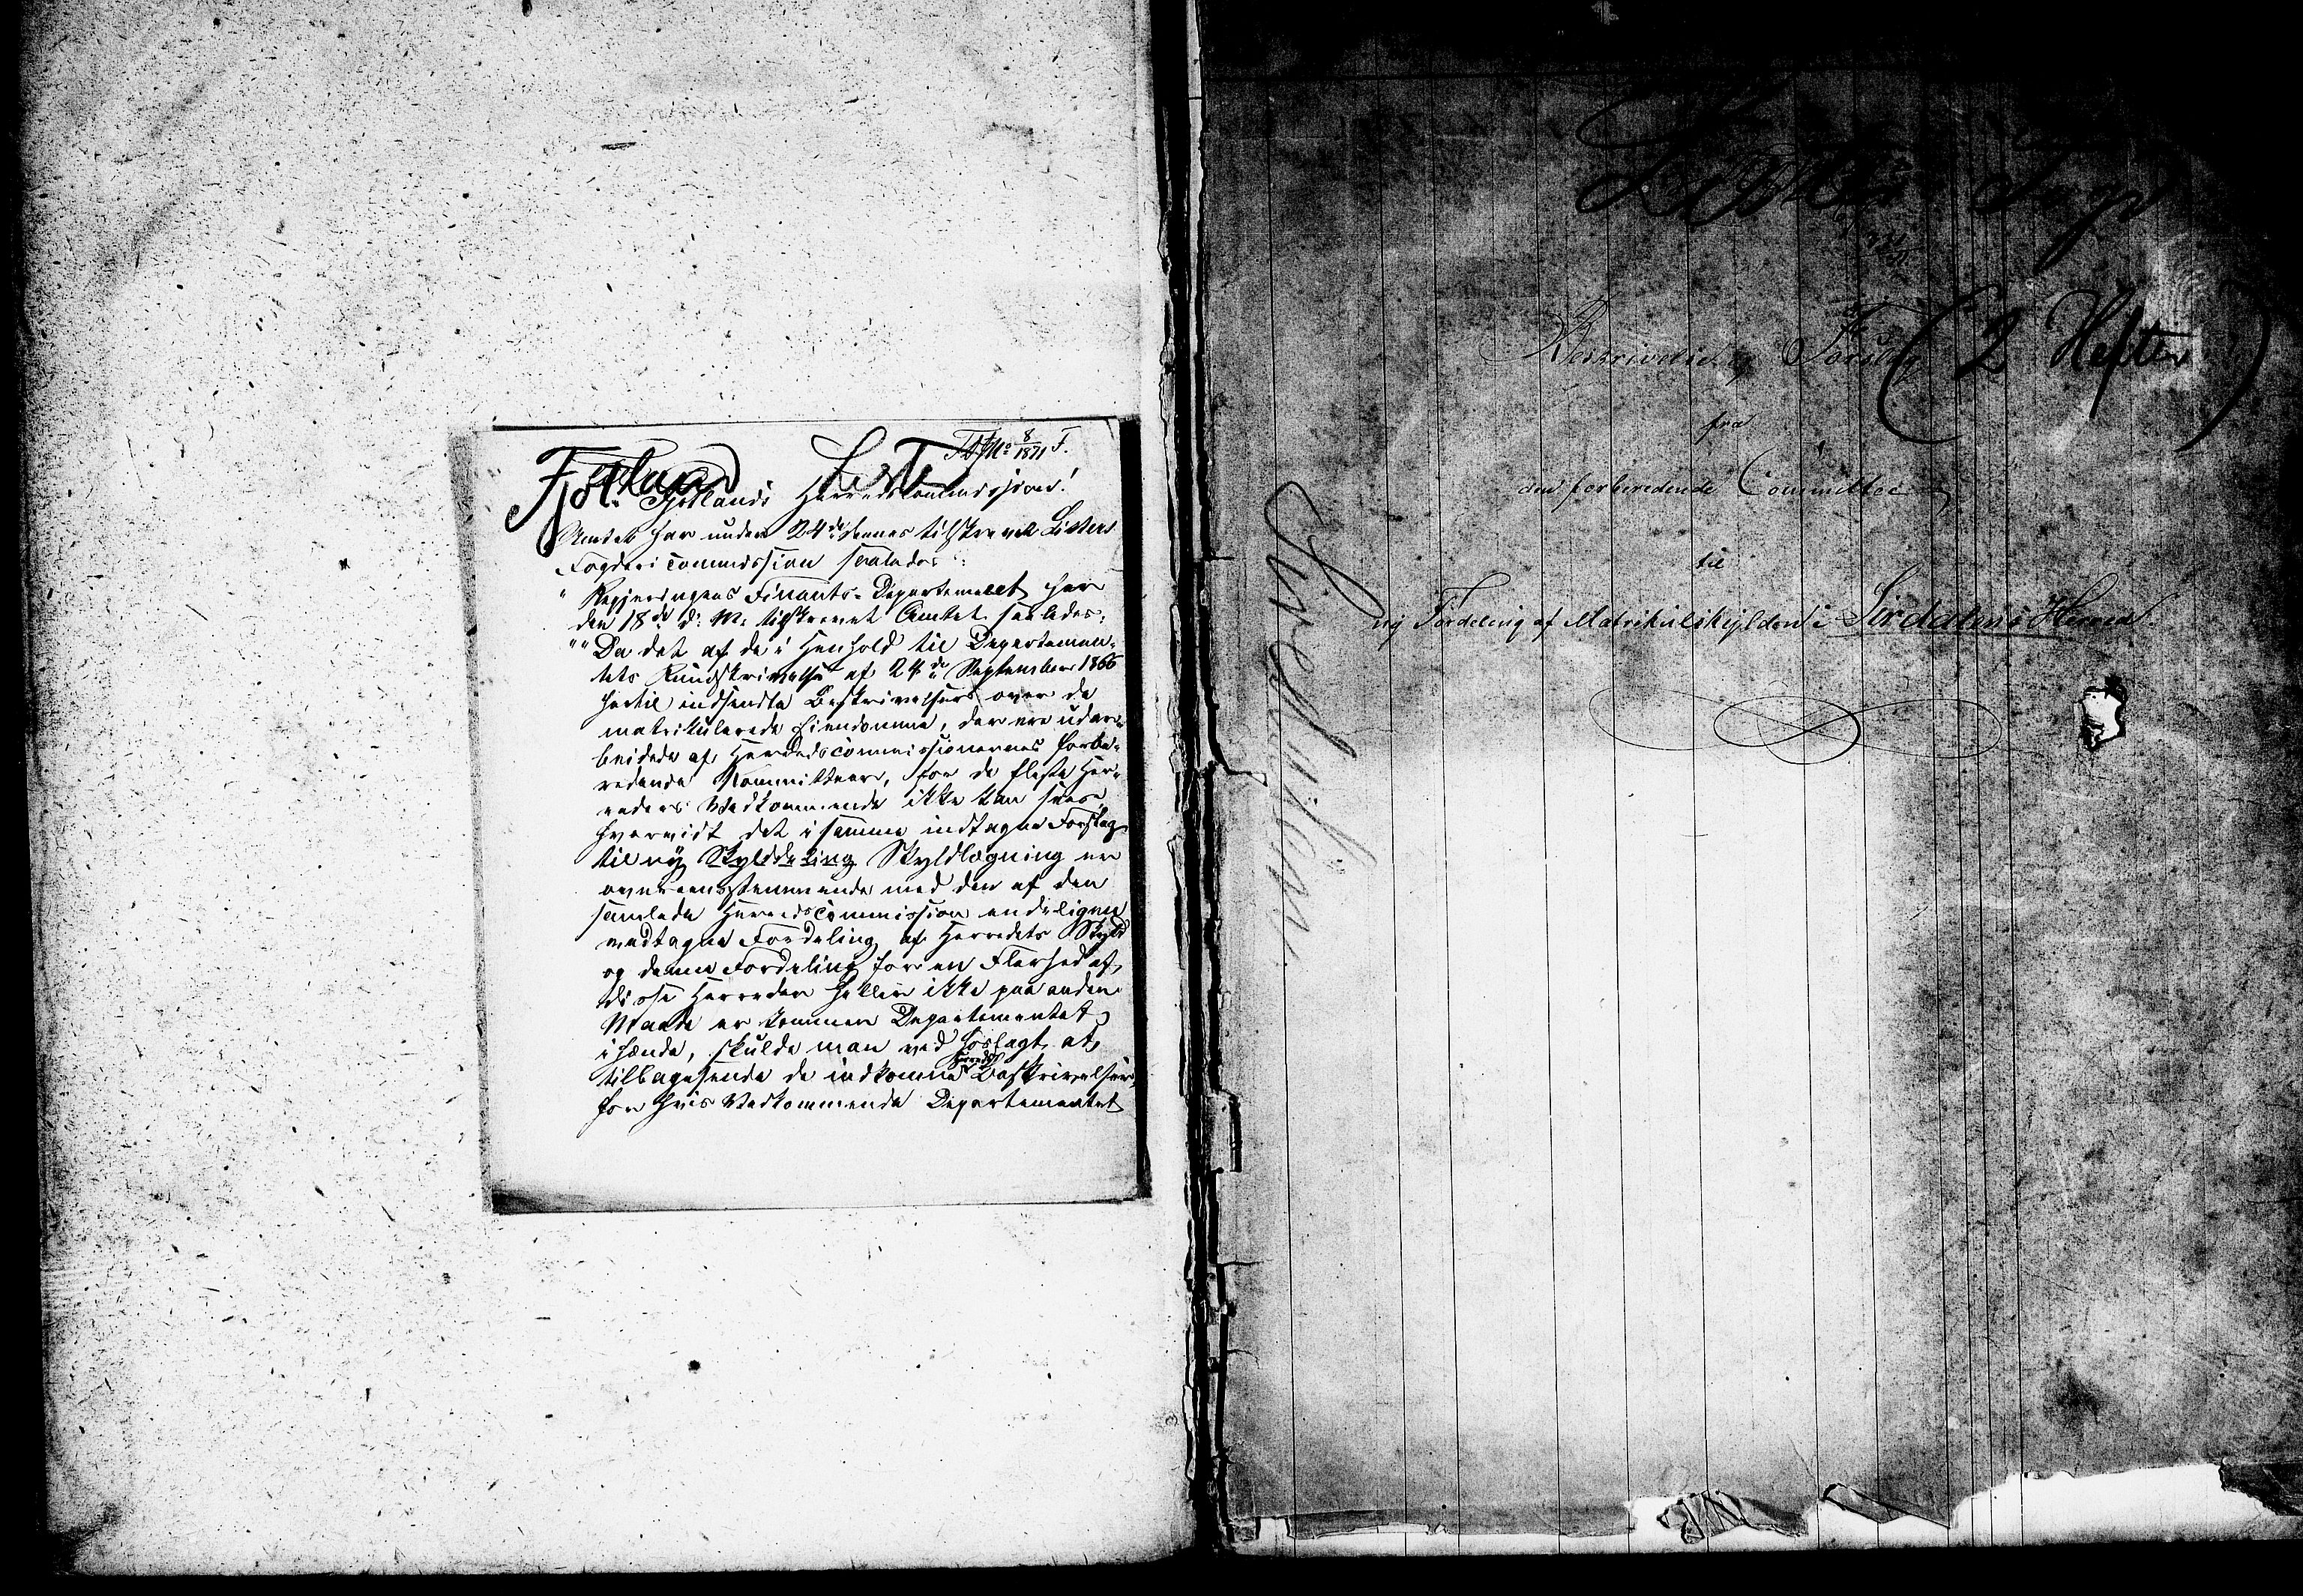 Fjotland Lister
8/1871 F.
Fjotlands Herredscommission!
Amtet har under 24de dennes tilskrevet Listers
Fogdericommission saaledes:
" Regjeringens Finants-Departement har
den 18de d: M. tilskrevet Amtet saaledes:
"" Da det af de i Henhold til Departemen-
tets Rundskrivelse af 24de September 1866
hertil indsendte Beskrivelser over de
matrikulerede Eiendomme, der ere udar-
beidede af Herredscommissionernes forbe-
redende Kommitteer, for de fleste Her-
reders Vedkommende ikke kan sees,
hvorvidt det i samme indtagne Forslag
til ny Skylddeling Skyldlægning er
overeensstemmende med den af den
samlede Herredscommission endeligen
vedtagne Fordeling af Herredets Skyld
og denne Fordeling for en Fleerhed af
disse Herreder heller ikke paa anden
Maade er kommen Departementet
i Hænde, skulde man ved Hoslagt at
tilbagesende de indkomne Herreds Beskrivelser,
for hvis Vedkommende Departementet
Lister Fogd
(2 Hefter)
Beskrivelse og Forslag
fra
den forberedende Committee
til
ny Fordeling af Matrikulskylden i Sirdalens Herred.
Sirdalen